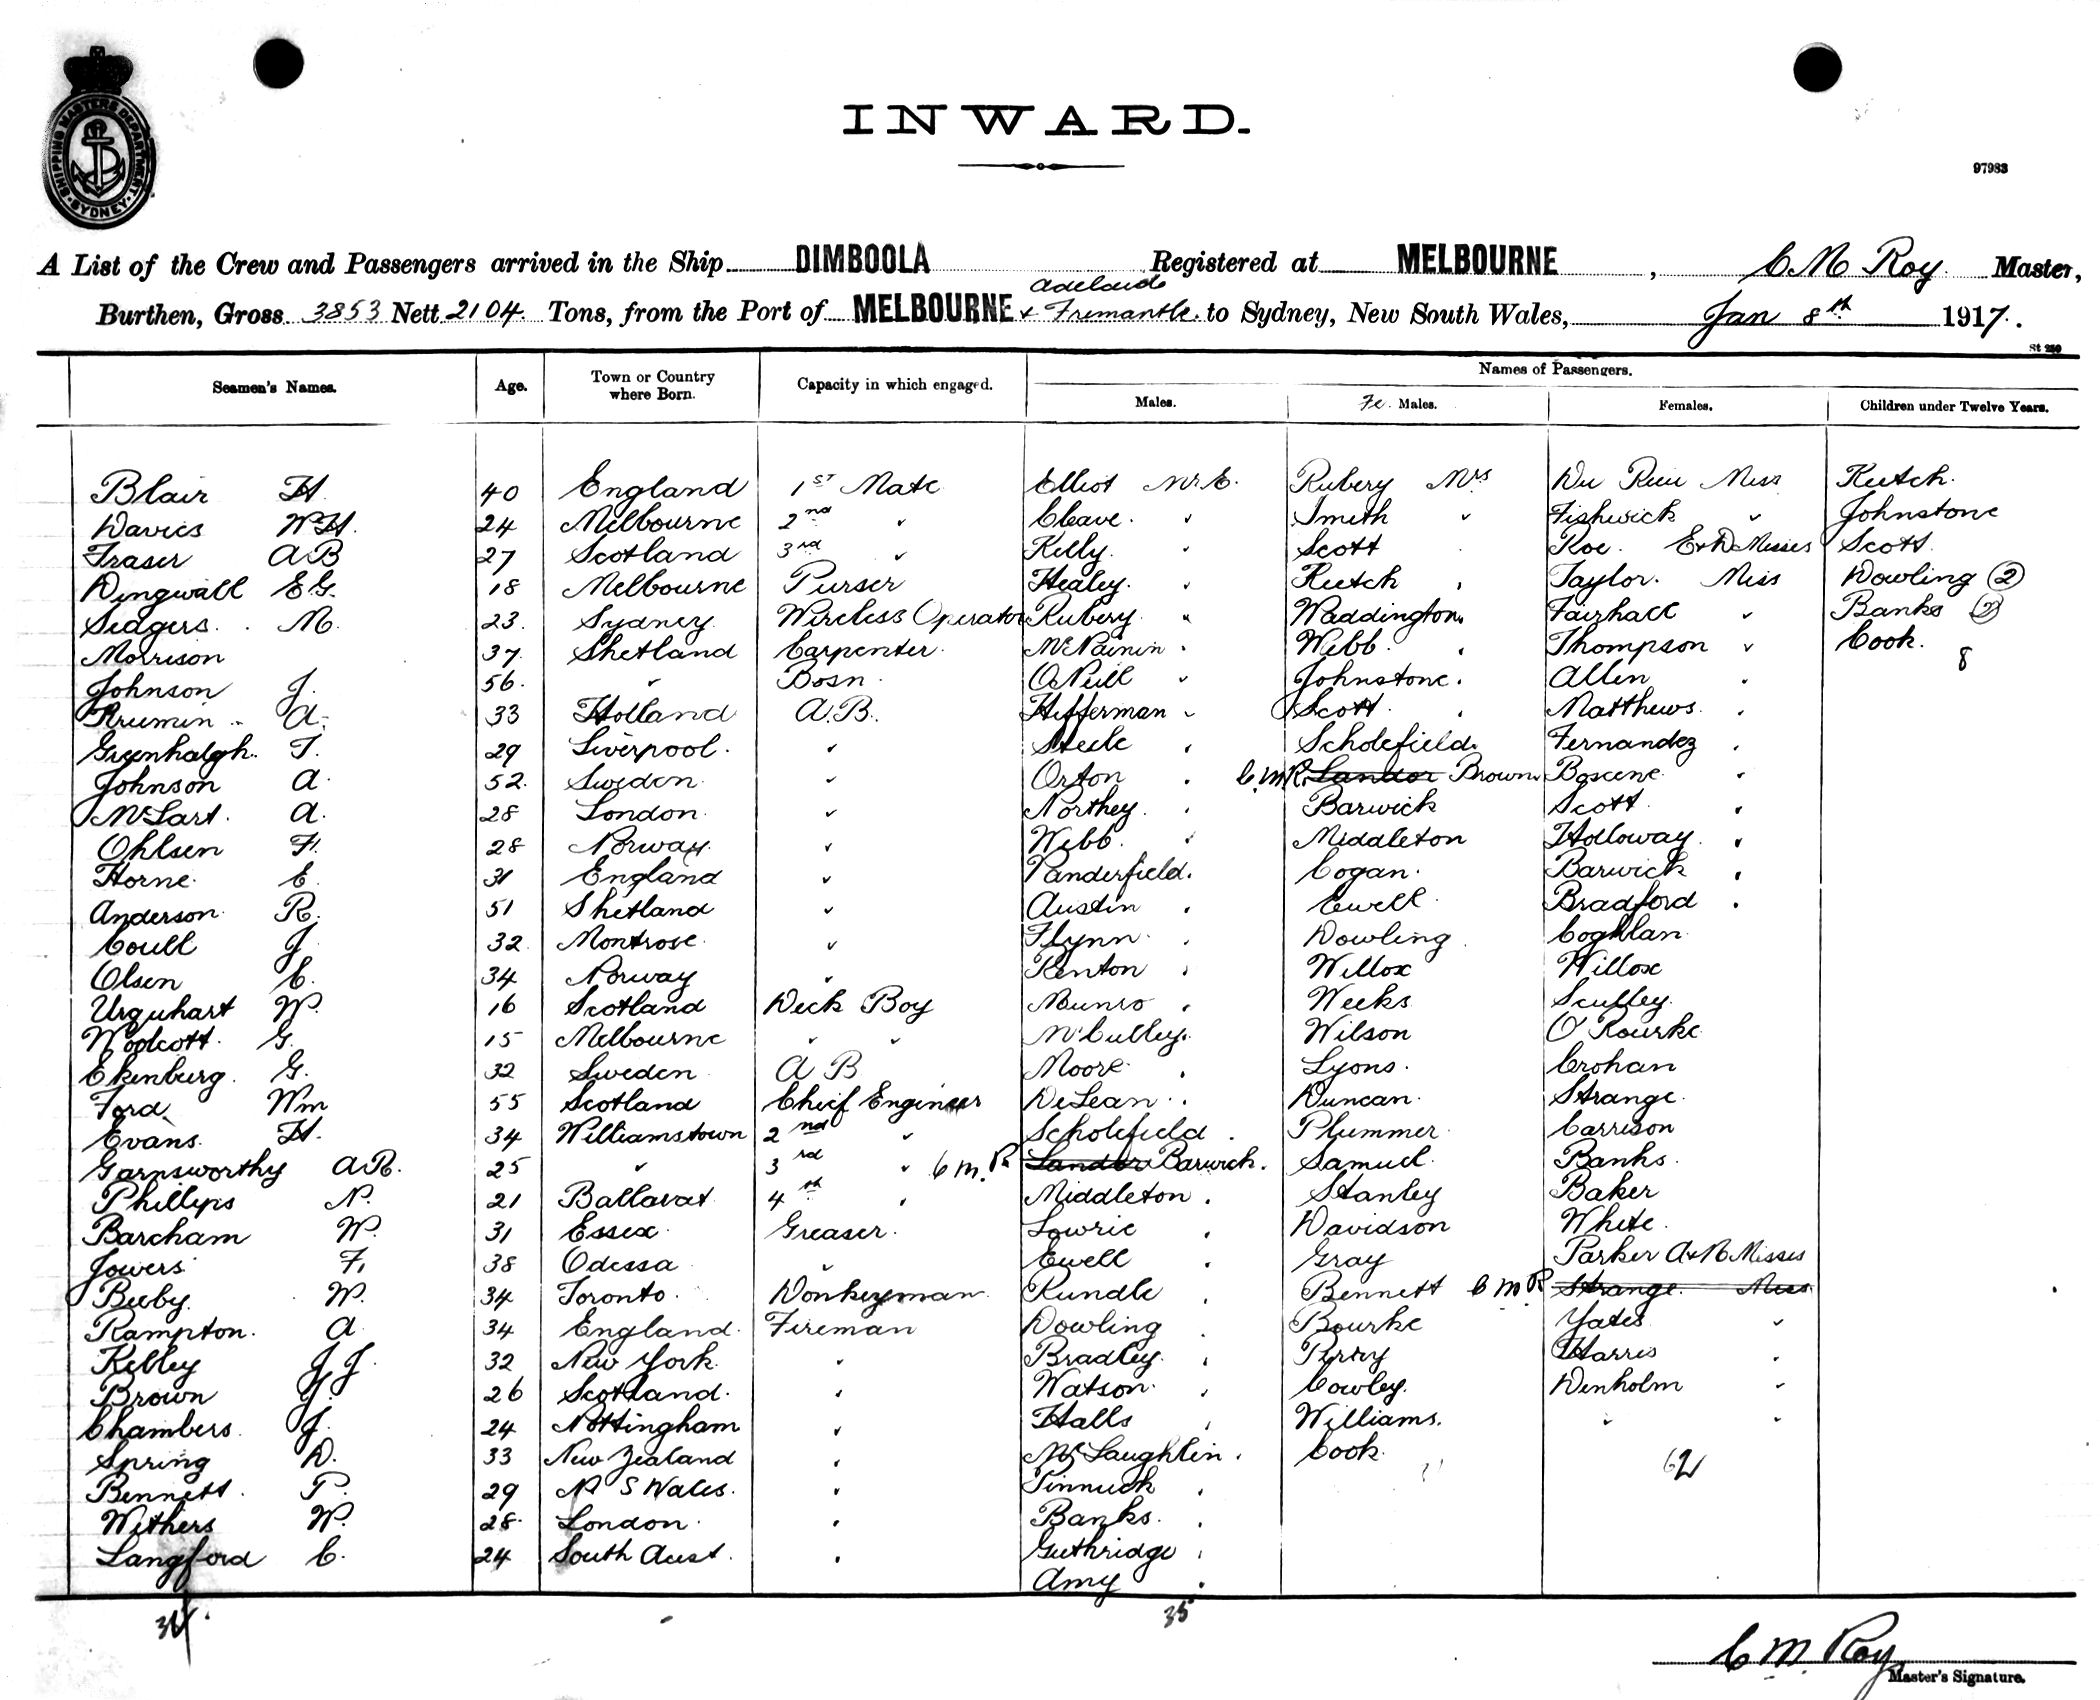 SHIPPING MASTERS DEPARTMENT SYDNEY
INWARD.
97983
A List of the Crew and Passengers arrived in the Ship DIMBOOLA Registered at MELBOURNE, C M Roy Master,
Adelaide
Burthen, Gross 3853 Nett 2104 Tons, from the Port of MELBOURNE & Fremantle to Sydney, New South Wales, Jan 8th 1917.
St 250
Seamen's Names. Age. Town or Country where Born. Capacity in which engaged. Names of Passengers.
Males. Fe Males. Females. Children under Twelve Years.
Blair H. 40 England 1st Mate Elliot Mr E. Rubery Mrs Du Rieu Miss Kutch.
Davies W.H. 24 Melbourne 2nd " Cleave. " Smith " Fishwick " Johnstone
Fraser A B 27 Scotland 3rd " Kelly. " Scott Roe. E & D Misses Scott.
Dingwall E G. 18 Melbourne Purser Healey. " Kutch " Taylor. Miss Dowling (2)
Seagers. M. 23. Sydney. Wireless Operator Rubery. " Waddington. Fairhall " Banks (2)
Morrison 37. Shetland Carpenter. " Webb. " Thompson " Cook.
8
Johnson J. 56. " Bosn. O'Neill " Johnstone. Allen "
A. 33 Holland A.B. Hefferman " Scott. " Matthews. "
Greenhalgh. T. 29 Liverpool. " Steele " Scholefield. Fernandez "
Johnson A. 52. Sweden. " Orton " C.M.R. Landor Brown. "
A. 28 London. " Northey. " Barwick Scott. "
Ohlsen F. 28 Norway. " Webb. " Middleton Holloway. "
Horne. E. 31 England " Vanderfield. Cogan. Barwick "
Anderson. R. 51 Shetland " Austin " Ewell. Bradford "
Coull J 32 Montrose. " Flynn. " Dowling. Coghlan
Olsen C. 34 Norway " Renton " Willox Willox
Urquhart W. 16 Scotland Deck Boy Munro " Weeks Sculley.
Woolcott. G. 15 Melbourne " " McCulley. Wilson O'Rourke
Ekenburg. G. 32 Sweden A B Moore. " Lyons. Crohan
Ford Wm 55 Scotland Chief Engineer DeLean. " Duncan. Strange.
Evans. H. 34 Williamstown 2nd " Scholefield. Plummer Carrison
Garnsworthy A R. 25 " 3rd " C.M.R. Landor Barwick. Samuel. Banks.
Phillips N. 21 Ballarat 4th " Middleton. Stanley Baker
Barcham W. 31 Essex. Greaser. Lowrie " Davidson White.
Jowers F. 38 Odessa " Ewell " Gray Parker A & N Misses
Beeby. W. 34 Toronto. Donkeyman. Rundle " Bennett C M R Strange. Miss
Rampton. A 34 England. Fireman Dowling " Bourke Yates "
Kelley J J. 32 New York. " Bradley. " Perry Harris "
Brown G. 26 Scotland. " Watson. " Cowley. Denholm "
Chambers. J. 24 Nottingham " Halls " Williams. " "
Spring D. 33 New Zealand " McLaughlin. Cook.
62
Bennett. P. 29 N S Wales. " Pinnuck "
Withers W. 28. London. " Banks. "
Langford C. 24 South Aust. " Guthridge "
Amy "
34. 35
C M Roy
Master's Signature.